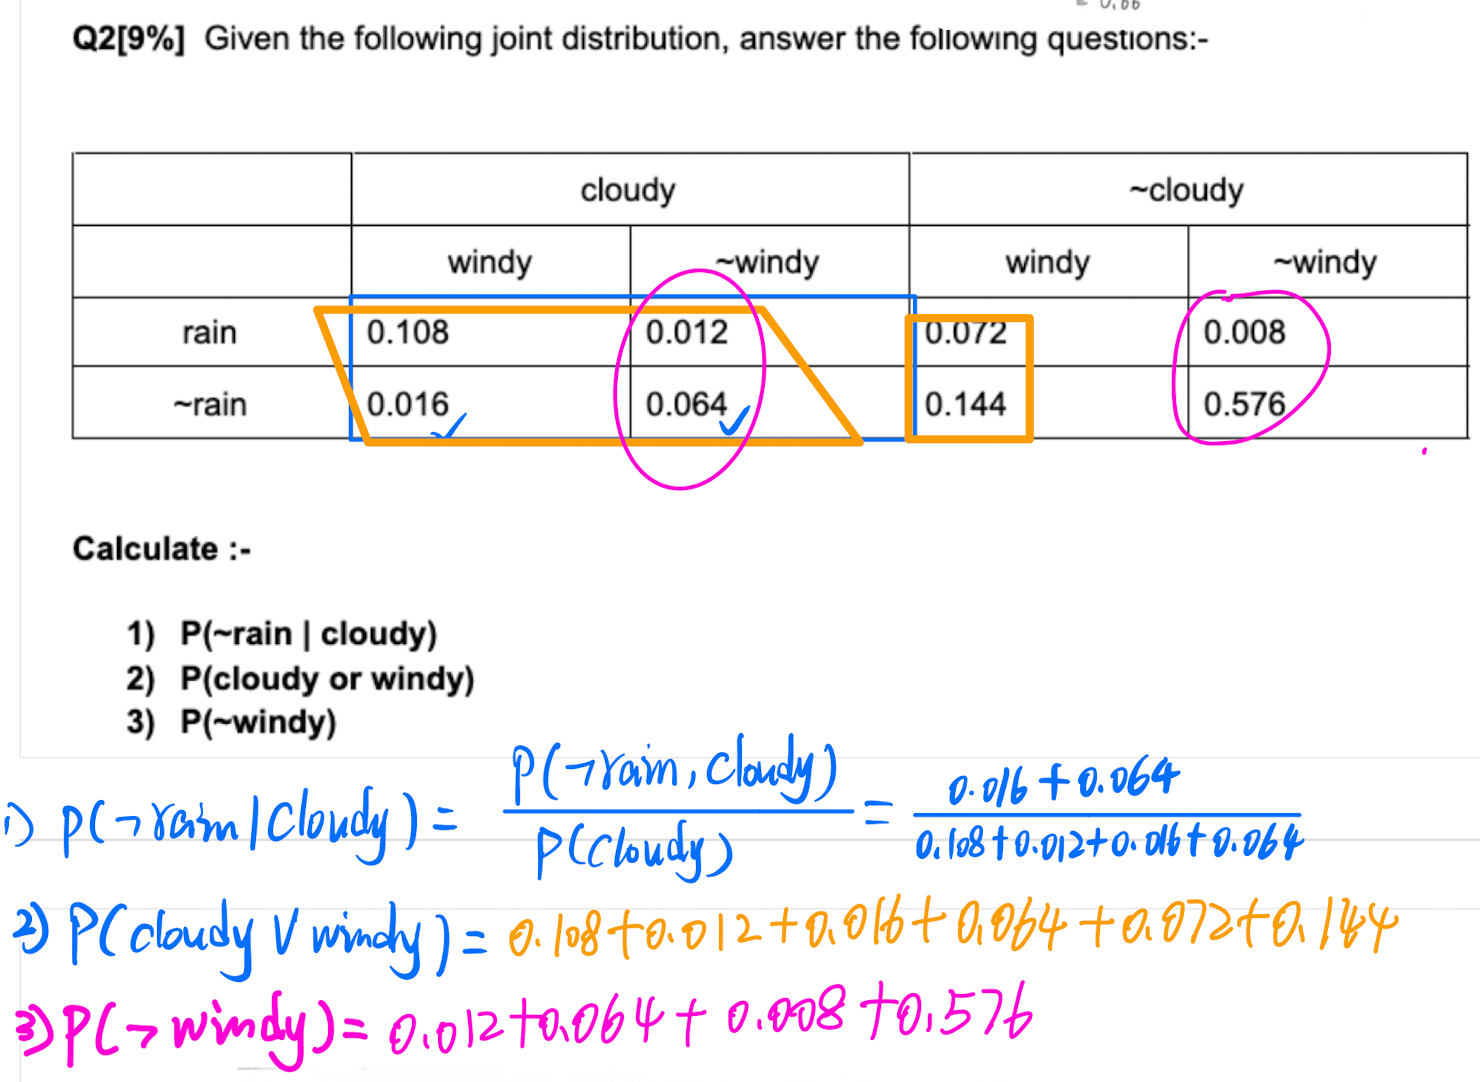 = 0.66
Q2[9%] Given the following joint distribution, answer the following questions:-
cloudy ~cloudy
windy ~windy windy ~windy
rain 0.108 0.012 0.072 0.008
~rain 0.016 0.064 0.144 0.576
Calculate :-
1) P(~rain | cloudy)
2) P(cloudy or windy)
3) P(~windy)
1) P(¬rain | Cloudy) = P(¬rain, Cloudy) / P(Cloudy) = 0.016 + 0.064 / 0.108 + 0.012 + 0.016 + 0.064
2) P(cloudy ∨ windy) = 0.108 + 0.012 + 0.016 + 0.064 + 0.072 + 0.144
3) P(¬windy) = 0.012 + 0.064 + 0.008 + 0.576